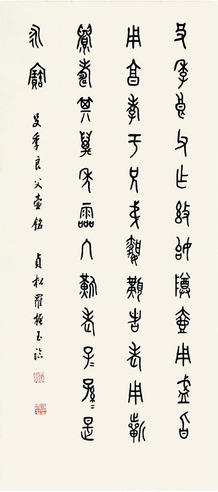 殳季良父乍姒尊壺用盛旨
用享孝于兄弟婚媾者老用祈
眉壽其萬年霝冬難老子〻孫〻是
永寶
殳季良父壺銘 貞松羅振玉臨